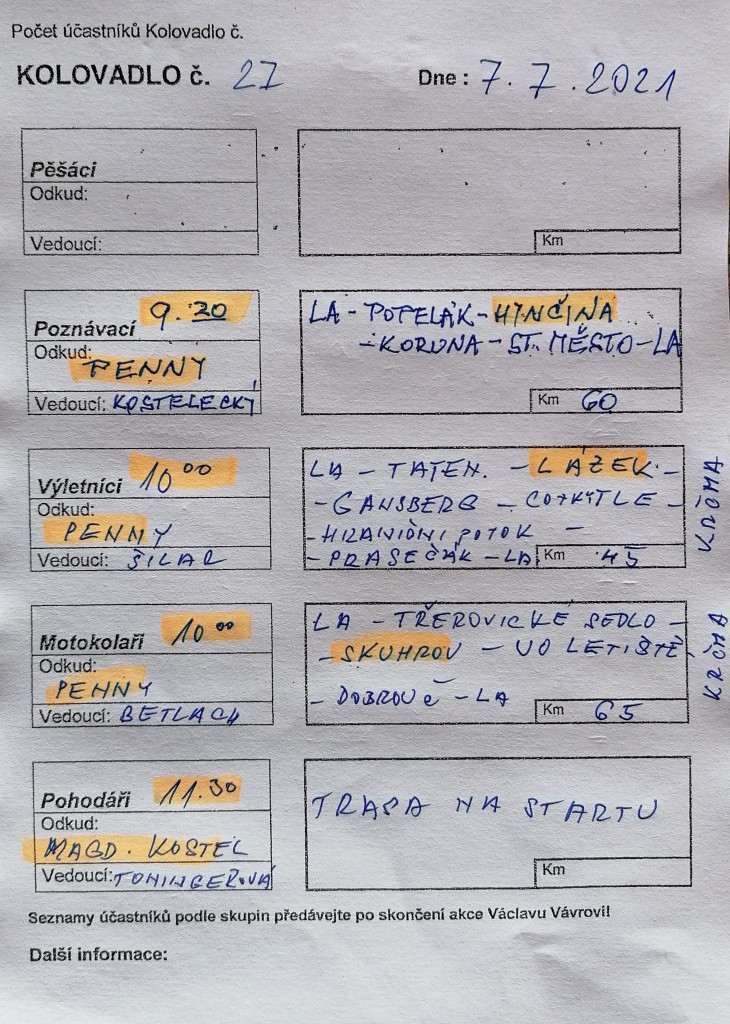 Počet účastníků Kolovadlo č.
KOLOVADLO č. 27 Dne : 7. 7. 2021
Pěšáci
Odkud:
Vedoucí:
Km
Poznávací 9.20
Odkud: PENNY
Vedoucí: KOSTELECKÝ
LA - POPELÁK - HYNČINA
- KORUNA - ST. MĚSTO - LA
Km 60
Výletníci 10 00
Odkud:
PENNY
Vedoucí: ŠILAR
LA - TATEN. - LÁZEK -
- GANSBERG - COTKYTLE -
- HRANIČNÍ POTOK -
- PRASEČÁK - LA
Km 45
KRČMA
Motokolaři 10 00
Odkud:
PENNY
Vedoucí: BETLACH
LA - TŘEROVICKÉ SEDLO -
- SKUHROV - UO LETIŠTĚ
- DOBROUČ - LA
Km 65
KRČMA
Pohodáři 11.30
Odkud:
MAGD. KOSTEL
Vedoucí: TOMINGEROVÁ
TRASA NA STARTU
Km
Seznamy účastníků podle skupin předávejte po skončení akce Václavu Vávrovi!
Další informace: